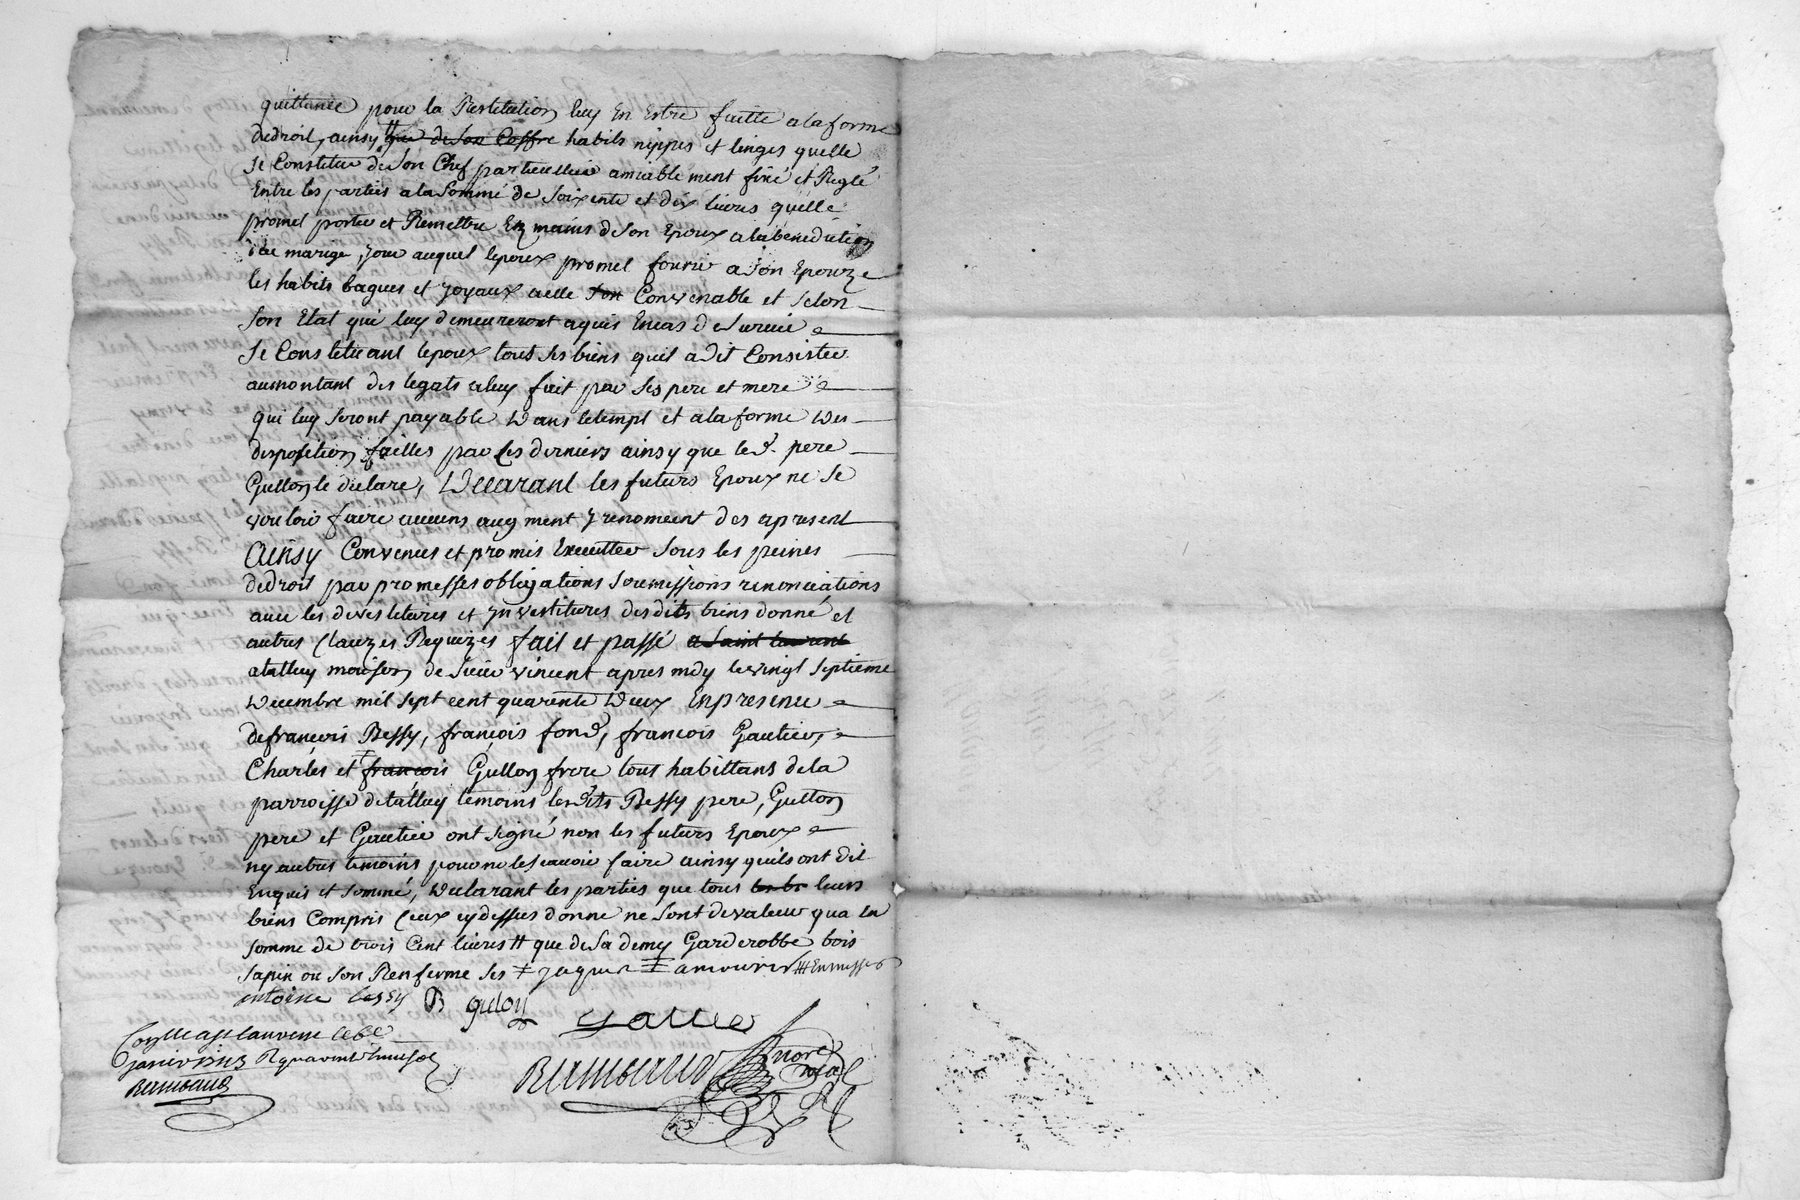 quittance pour la Restitution luy En Estre faitte a la forme
dedroit, ainsy # que de son Coffre habits nippes et linges quelle
Se Constitue de Son Chef particullier amiablement fixé et Reglé
Entre les parties a la Somme de Soixente et dix livres quelle
promet porter et Remettre En mains de Son Epoux a la benediction
de marige, Jour auquel lepoux promet fournir a Son Epouze
les habits bagues et Joyaux a elle son Convenable et Selon
Son Etat qui luy demeureront aquis Encas de Survie
Se Constituant lepoux tous ses biens quil a dit Consister
aumontant des legats a luy fait par Ses pere et mere
qui luy Seront payable Dans letempt et a la forme Des
disposition faittes par les derniers ainsy que led. pere
Gullon le declare, Declarant les futurs Epoux ne Se
vouloir faire aucuns augment y renoncent des apresent
Ainsy Convenus et promis Executter Sous les peines
dedroit par promesses obligations Soumissions renonciations
avec les devestitures et Investitures desdits biens donné et
autres Clauzes Requizes fait et passé a Saint laurent
atalluy maison de Sieur vincent apres mdy le vingt Septieme
Decembre mil Sept cent quarente Deux Enpresence
defrancois Bessy, francois fond, francois Gautier,
Charles et francois Gullon frere tous habittans dela
parroisse detalluy temoins lesdits Bessy pere, Gullon
pere et Gautier ont Signé non les futurs Epoux
ny autres temoins pour ne le Scavoir faire ainsy quils ont dit
Enquis et Sommé, Declarant les parties que tous leurs
biens Compris Ceux cy dessus donné ne Sont devaleur qua la
Somme de trois Cent livres # que de Sa demy Garderobbe bois
Sapin ou Son Renfermé Ses ‡ Jaques
antoine bessy B gulon